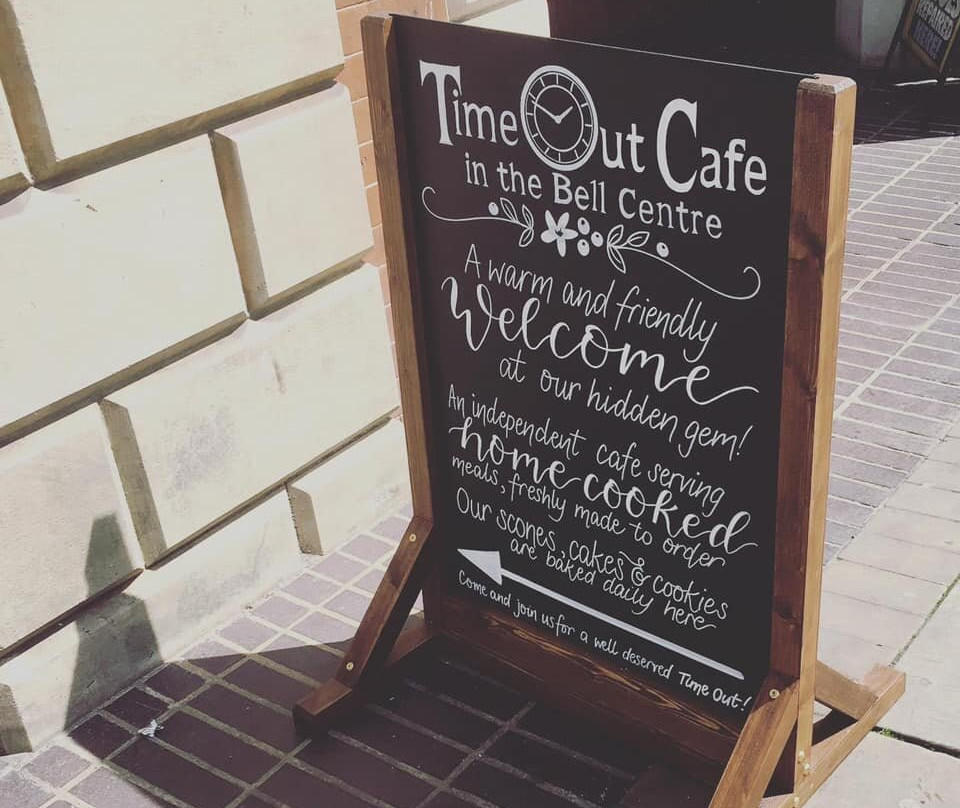 Time Out Cafe
in the Bell Centre
A warm and friendly
Welcome
at our hidden gem!
An independent cafe serving
home cooked
meals, freshly made to order
Our scones, cakes & cookies
are baked daily here
Come and join us for a well deserved Time Out!
REPAIRED
HERE!